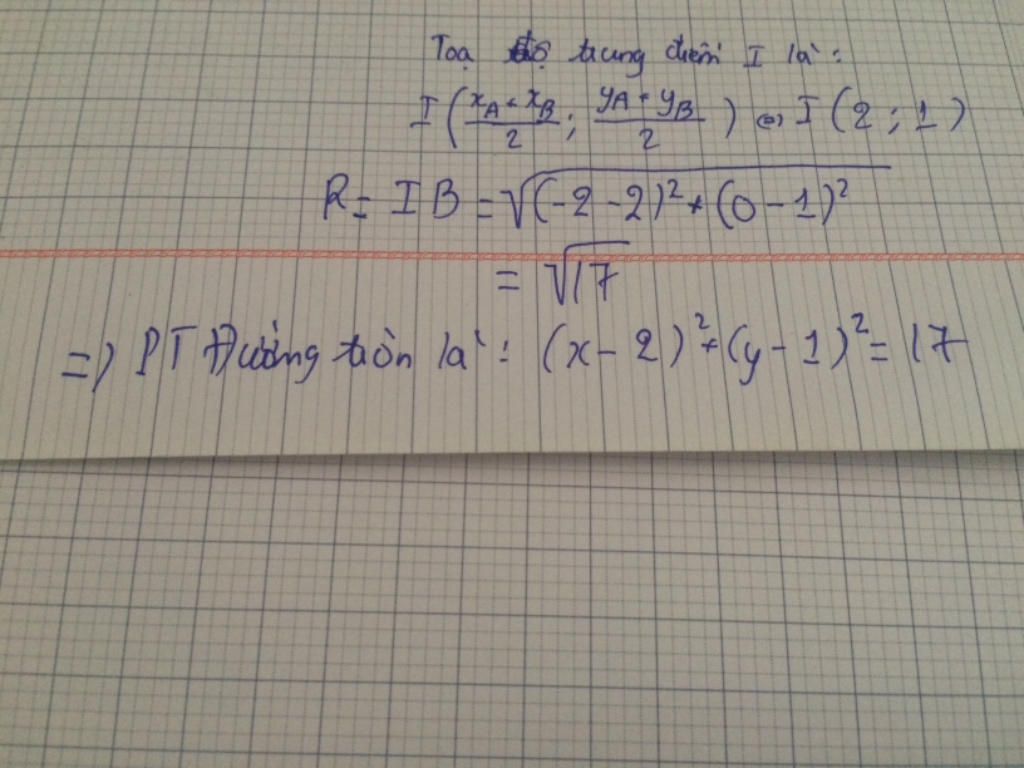 Toạ độ trung điểm I là:
I(\frac{x_A + x_B}{2}; \frac{y_A + y_B}{2}) ⇔ I(2; 1)
R = IB = \sqrt{(-2-2)^2 + (0-1)^2}
= \sqrt{17}
=> PT Đường tròn là: (x-2)^2 + (y-1)^2 = 17